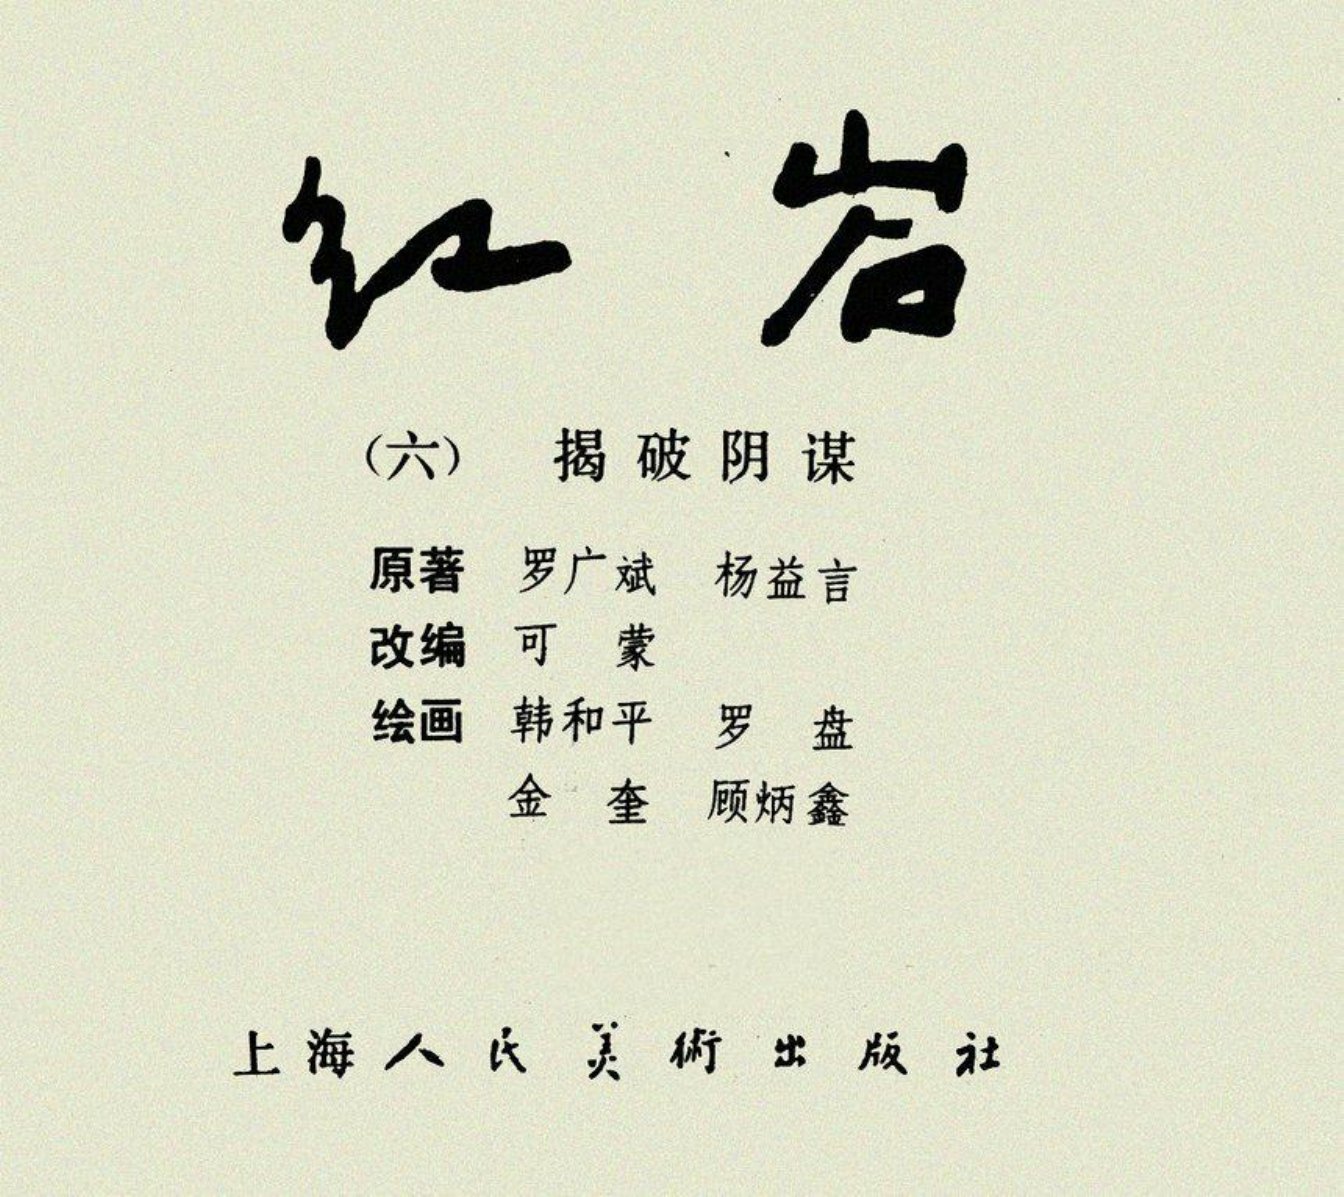 红岩
（六） 揭破阴谋
原著 罗广斌 杨益言
改编 可 蒙
绘画 韩和平 罗 盘
金 奎 顾炳鑫
上海人民美術出版社